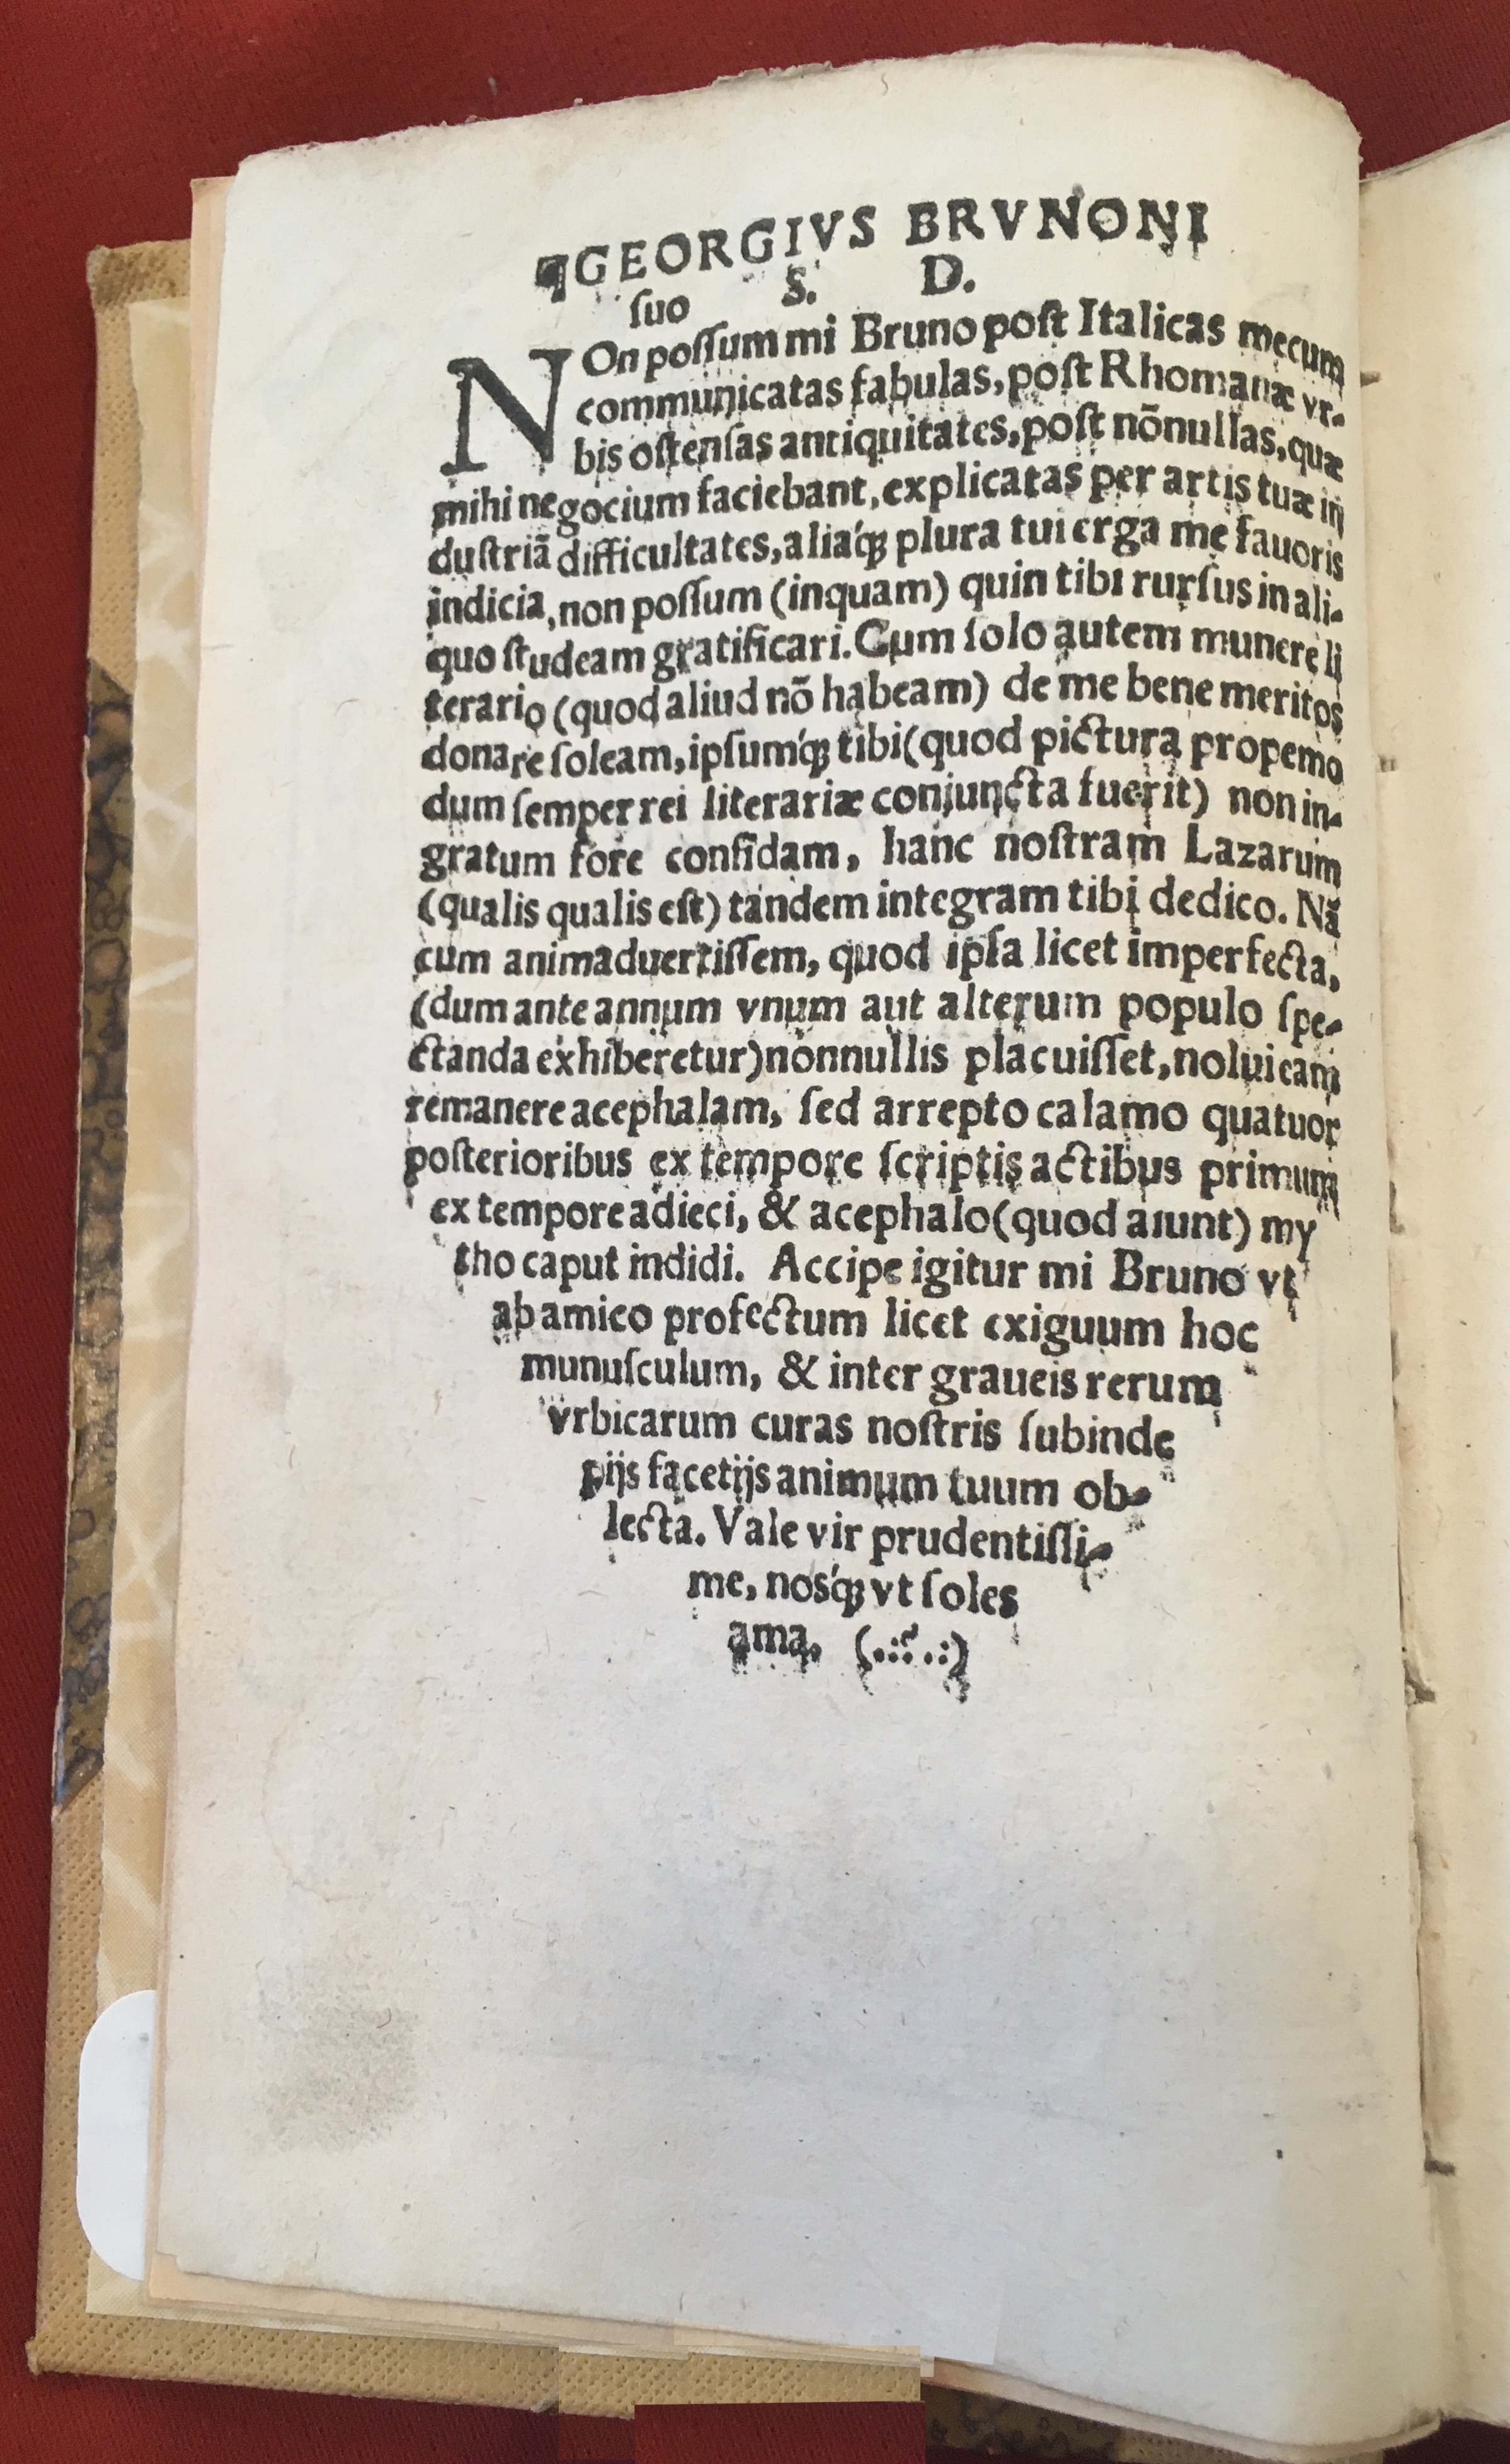 ¶GEORGIVS BRVNONI
ſuo S. D.
NOn poſſum mi Bruno poſt Italicas mecum
communicatas fabulas, poſt Rhomanæ vr-
bis oſtenſas antiquitates, poſt nõnullas, quæ
mihi negocium faciebant, explicatas per artis tuæ in
duſtriã difficultates, aliaq́ꝫ plura tui erga me fauoris
indicia, non poſſum (inquam) quin tibi rurſus in ali-
quo ſtudeam gratificari. Cum ſolo autem munere li
terario (quod aliud nõ habeam) de me bene meritos
donare ſoleam, ipſumq́ꝫ tibi (quod pictura propemo
dum ſemper rei literariæ conjuncta fuerit) non in-
gratum fore confidam, hanc noſtram Lazarum
(qualis qualis eſt) tandem integram tibi dedico. Nã
cum animaduertiſſem, quod ipſa licet imperfecta,
(dum ante annum vnum aut alterum populo ſpe-
ctanda exhiberetur) nonnullis placuiſſet, nolui eam
remanere acephalam, ſed arrepto calamo quatuor
poſterioribus ex tempore ſcriptis actibus primum
ex tempore adieci, & acephalo (quod aiunt) my
tho caput indidi. Accipe igitur mi Bruno vt
ab amico profectum licet exiguum hoc
munuſculum, & inter graueis rerum
vrbicarum curas noſtris ſubinde
pijs facetijs animum tuum ob-
lecta. Vale vir prudentiſſi-
me, nosq́ꝫ vt ſoles
ama.